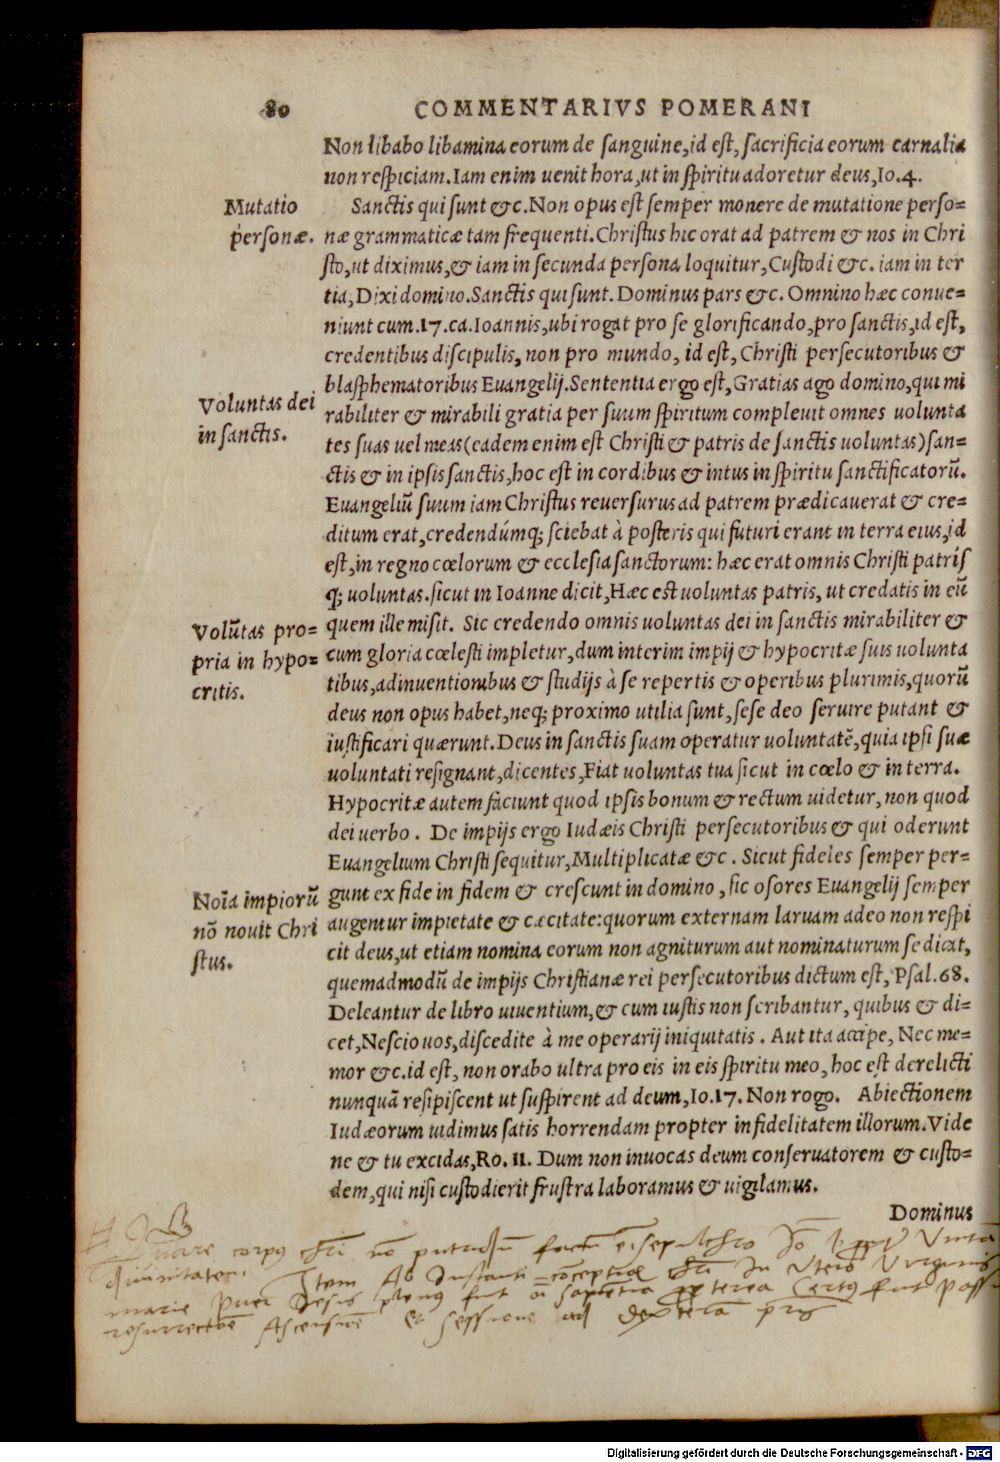 80 COMMENTARIVS POMERANI
Non libabo libamina eorum de sanguine, id est, sacrificia eorum carnalia
non respiciam. Iam enim uenit hora, ut in spiritu adoretur deus, Io. 4.
Mutatio
personæ.
Sanctis qui sunt &c. Non opus est semper monere de mutatione perso=
næ grammaticæ tam frequenti. Christus hic orat ad patrem & nos in Chri
sto, ut diximus, & iam in secunda persona loquitur, Custodi &c. iam in ter
tia, Dixi domino. Sanctis qui sunt. Dominus pars &c. Omnino hæc conue=
niunt cum .17. ca. Ioannis, ubi rogat pro se glorificando, pro sanctis, id est,
credentibus discipulis, non pro mundo, id est, Christi persecutoribus &
blasphematoribus Euangelij. Sententia ergo est, Gratias ago domino, qui mi
Voluntas dei
in sanctis.
rabiliter & mirabili gratia per suum spiritum compleuit omnes uolunta
tes suas uel meas (eadem enim est Christi & patris de sanctis uoluntas) san=
ctis & in ipsis sanctis, hoc est in cordibus & intus in spiritu sanctificatorũ.
Euangeliũ suum iam Christus reuersurus ad patrem prædicauerat & cre=
ditum erat, credendúmq; sciebat à posteris qui futuri erant in terra eius, id
est, in regno cœlorum & ecclesia sanctorum: hæc erat omnis Christi patris
q; uoluntas. sicut in Ioanne dicit, Hæc est uoluntas patris, ut credatis in eũ
quem ille misit. Sic credendo omnis uoluntas dei in sanctis mirabiliter &
Volũtas pro=
pria in hypo=
critis.
cum gloria cœlesti impletur, dum interim impij & hypocritæ suis uolunta
tibus, adinuentionibus & studijs à se repertis & operibus plurimis, quorũ
deus non opus habet, neq; proximo utilia sunt, sese deo seruire putant &
iustificari quærunt. Deus in sanctis suam operatur uoluntatẽ, quia ipsi suæ
uoluntati resignant, dicentes, Fiat uoluntas tua sicut in cœlo & in terra.
Hypocritæ autem faciunt quod ipsis bonum & rectum uidetur, non quod
dei uerbo. De impijs ergo Iudæis Christi persecutoribus & qui oderunt
Euangelium Christi sequitur, Multiplicatæ &c. Sicut fideles semper per=
Noĩa impiorũ
nõ nouit Chri
stus.
gunt ex fide in fidem & crescunt in domino, sic osores Euangelij semper
augentur impietate & cæcitate: quorum externam laruam adeo non respi
cit deus, ut etiam nomina eorum non agniturum aut nominaturum se dicat,
quemadmodũ de impijs Christianæ rei persecutoribus dictum est, Psal. 68.
Deleantur de libro uiuentium, & cum iustis non scribantur, quibus & di=
cet, Nescio uos, discedite à me operarij iniquitatis. Aut ita accipe, Nec me=
mor &c. id est, non orabo ultra pro eis in eis spiritu meo, hoc est derelicti
nunquã resipiscent ut suspirent ad deum, Io. 17. Non rogo. Abiectionem
Iudæorum uidimus satis horrendam propter infidelitatem illorum. Vide
ne & tu excidas, Ro. 11. Dum non inuocas deum conseruatorem & custo=
dem, qui nisi custodierit frustra laboramus & uigilamus.
Dominus
Quare corpus christi nõ
diuinitatem. Item Ab Instanti in Vtero Virginis
marie puer Jesus plenus fuit
resurrectõe Ascensiõe & sessione ad dexteram
Digitalisierung gefördert durch die Deutsche Forschungsgemeinschaft - DFG